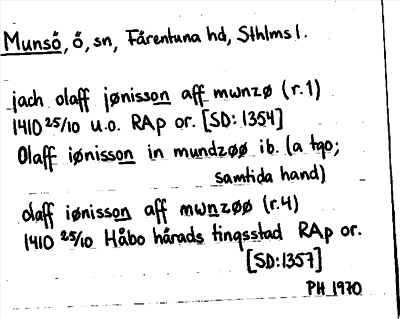 Munsö, ö, sn, Färentuna hd, Sthlms l.
jach olaff jønisson aff mwnzø (r.1)
1410 25/10 u.o. RAp or. [SD: 1354]
Olaff iønisson in mundzøø ib. (a tgo;
samtida hand)
olaff iønisson aff mwnzøø (r.4)
1410 25/10 Håbo härads tingsstad RAp or.
[SD:1357]
PH 1970